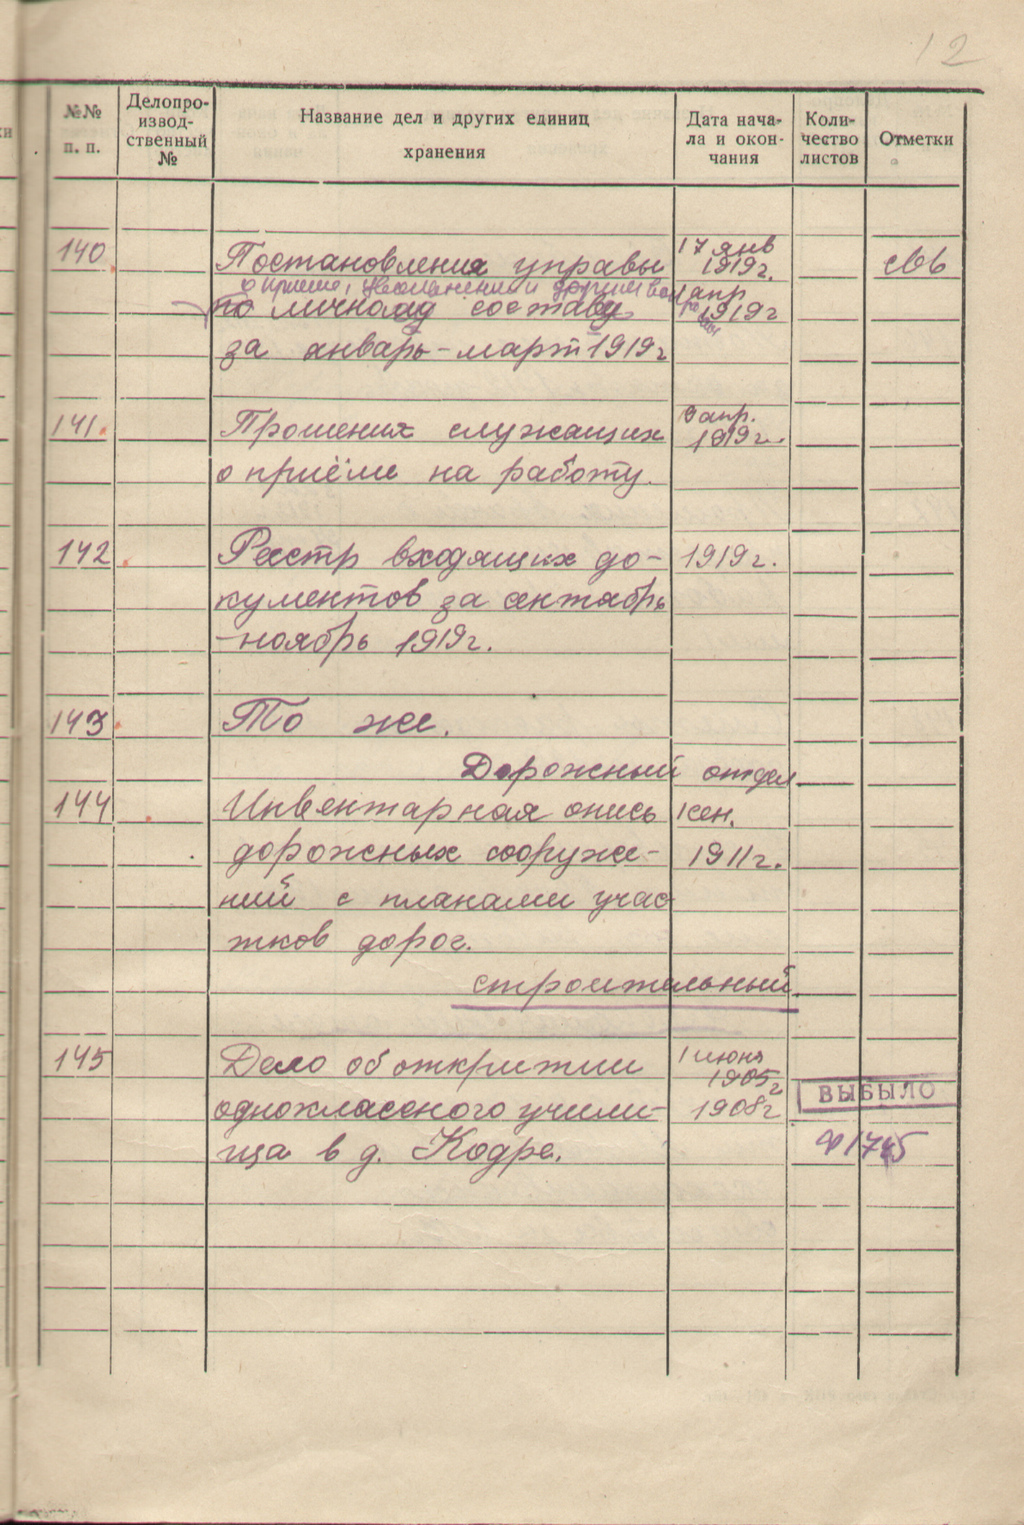 12
№№ п. п.
Делопро-
извод-
ственный
№
Название дел и других единиц
хранения
Дата нача-
ла и окон-
чания
Коли-
чество
листов
Отметки
140
Постановления управы
о приеме, увольнении и другим
по личному составу
за январь-март 1919г
17 янв
1919г.
1 апр
1919г
141.
Прошения служащих
о приёме на работу.
9 апр.
1919г.
142
Реестр входящих до-
кументов за октябрь
-ноябрь 1919г.
1919г.
143
То же.
Дорожный отдел
144
Инвентарная опись
дорожных сооруже-
ний с планами учас
тков дорог.
1 сен.
1911г.
строительный.
145
Дело об открытии
одноклассного учили-
ща в д. Кодре.
1 июня
1905г
1908г
ВЫБЫЛО
ф1745